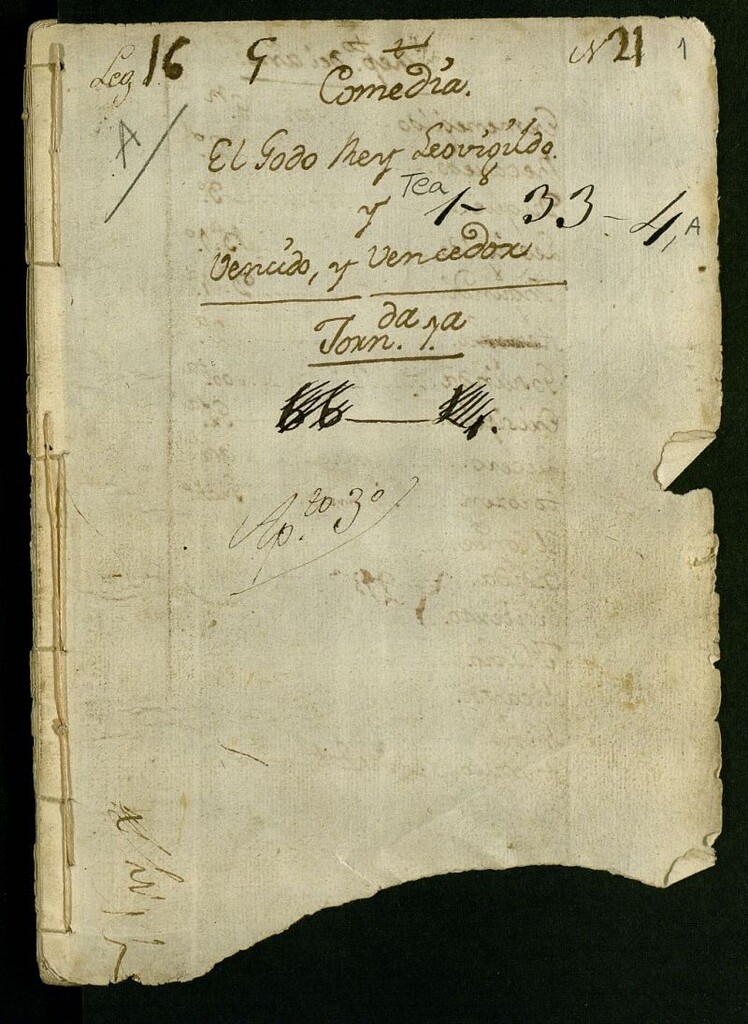 Leg 16 G N 21 1
Comedia.
A
El Godo Rey Leovigildo.
y Tea 1-33-4, A
Vencido, y Vencedor
Jorn.da 1.a
Ap.to 3o